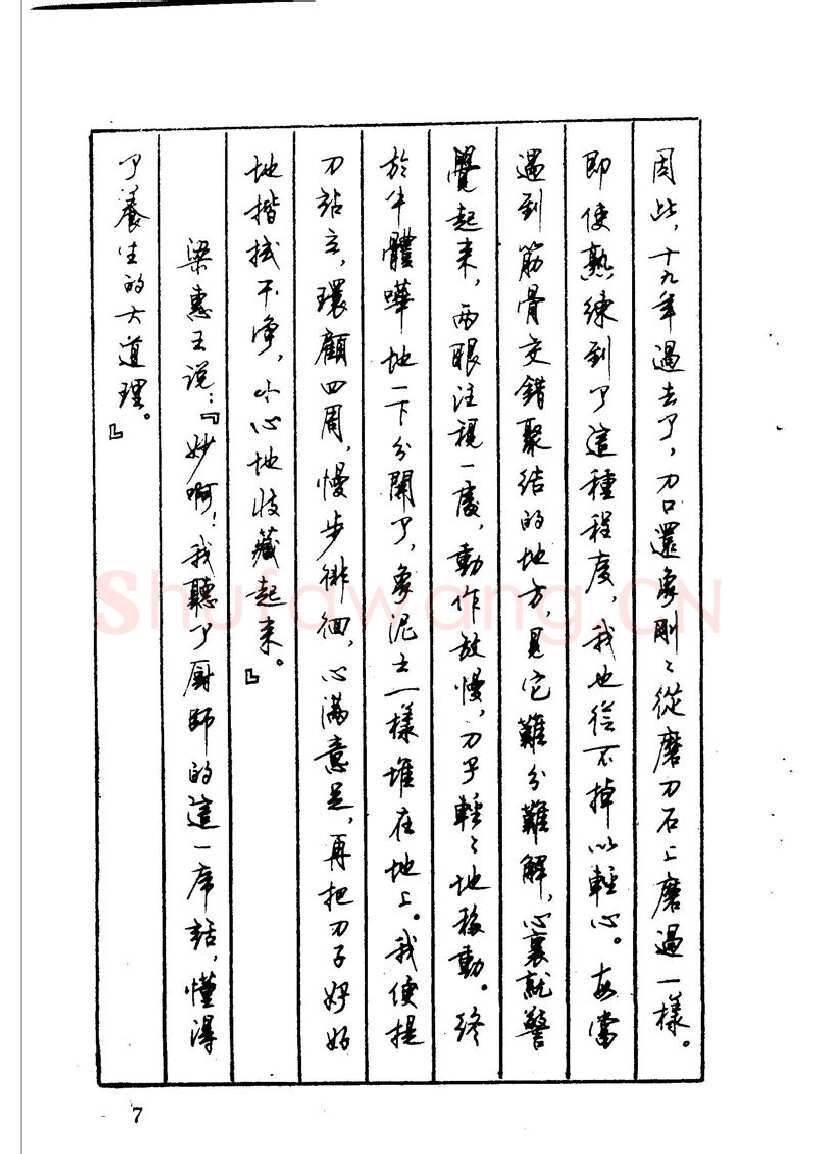 因此，十九年過去了，刀口還象剛〻從磨刀石上磨過一樣。
即使熟練到了這種程度，我也從不掉以輕心。每當
遇到筋骨交錯聚結的地方，見它難分難解，心裏就警
覺起来，两眼注視一處，動作放慢，刀子輕〻地移動。終
於牛體嘩地一下分開了，象泥土一樣堆在地上。我便提
刀站立，環顧四周，慢步徘徊，心滿意足，再把刀子好好
地揩拭干净，小心地收藏起来。』
梁惠王说：『妙啊！我聽了厨師的這一席話，懂得
了養生的大道理。』
Shufawang.CN
7